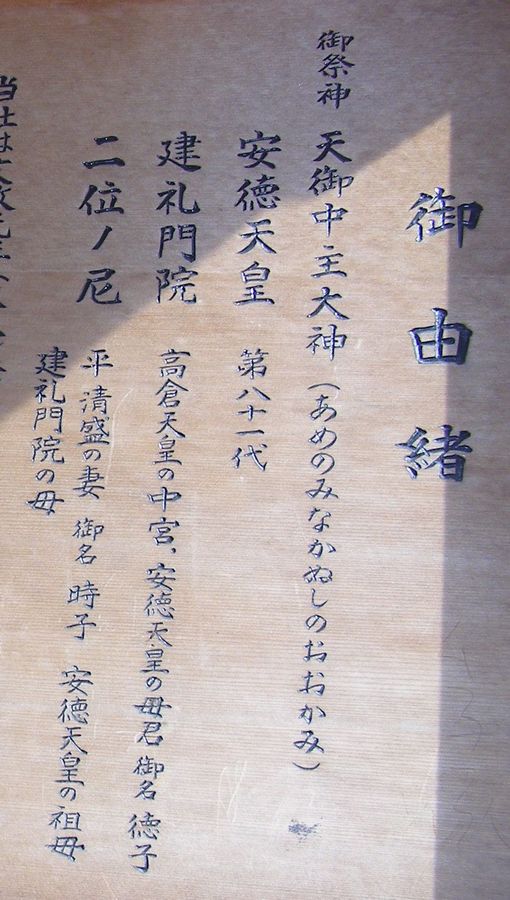 御由緒
御祭神 天御中主大神(あめのみなかぬしのおおかみ)
安徳天皇 第八十一代
建礼門院 高倉天皇の中宮、安徳天皇の母君 御名 徳子
二位ノ尼 平清盛の妻 御名 時子 安徳天皇の祖母
建礼門院の母
当社は